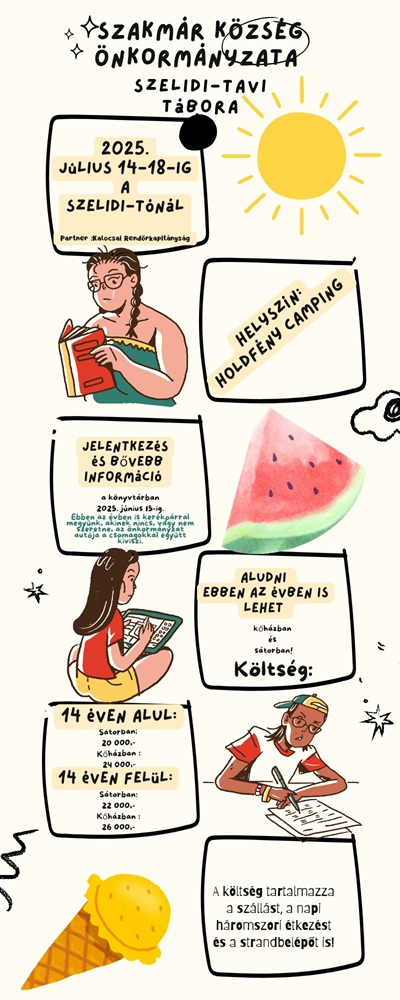 SZAKMÁR KÖZSÉG
ÖNKORMÁNYZATA
SZELIDI-TAVI
TáBORA
2025.
JÚLIUS 14-18-IG
A
SZELIDI-TÓNÁL
Partner :Kalocsai Rendőrkapitányság
HELYSZÍN:
HOLDFÉNY CAMPING
JELENTKEZÉS
éS BőVEBB
INFORMÁCIÓ
a könyvtárban
2025. június 15-ig.
Ebben az évben is kerékpárral
megyünk, akinek nincs, vagy nem
szeretne, az önkormányzat
autója a csomagokkal együtt
kiviszi.
ALUDNI
EBBEN AZ éVBEN IS
LEHET
kőházban
és
sátorban!
Költség:
14 éVEN ALUL:
Sátorban:
20 000,-
Kőházban :
24 000,-
14 éVEN FELÜL:
Sátorban:
22 000,-
Kőházban :
26 000,-
A költség tartalmazza
a szállást, a napi
háromszori étkezést
és a strandbelépőt is!